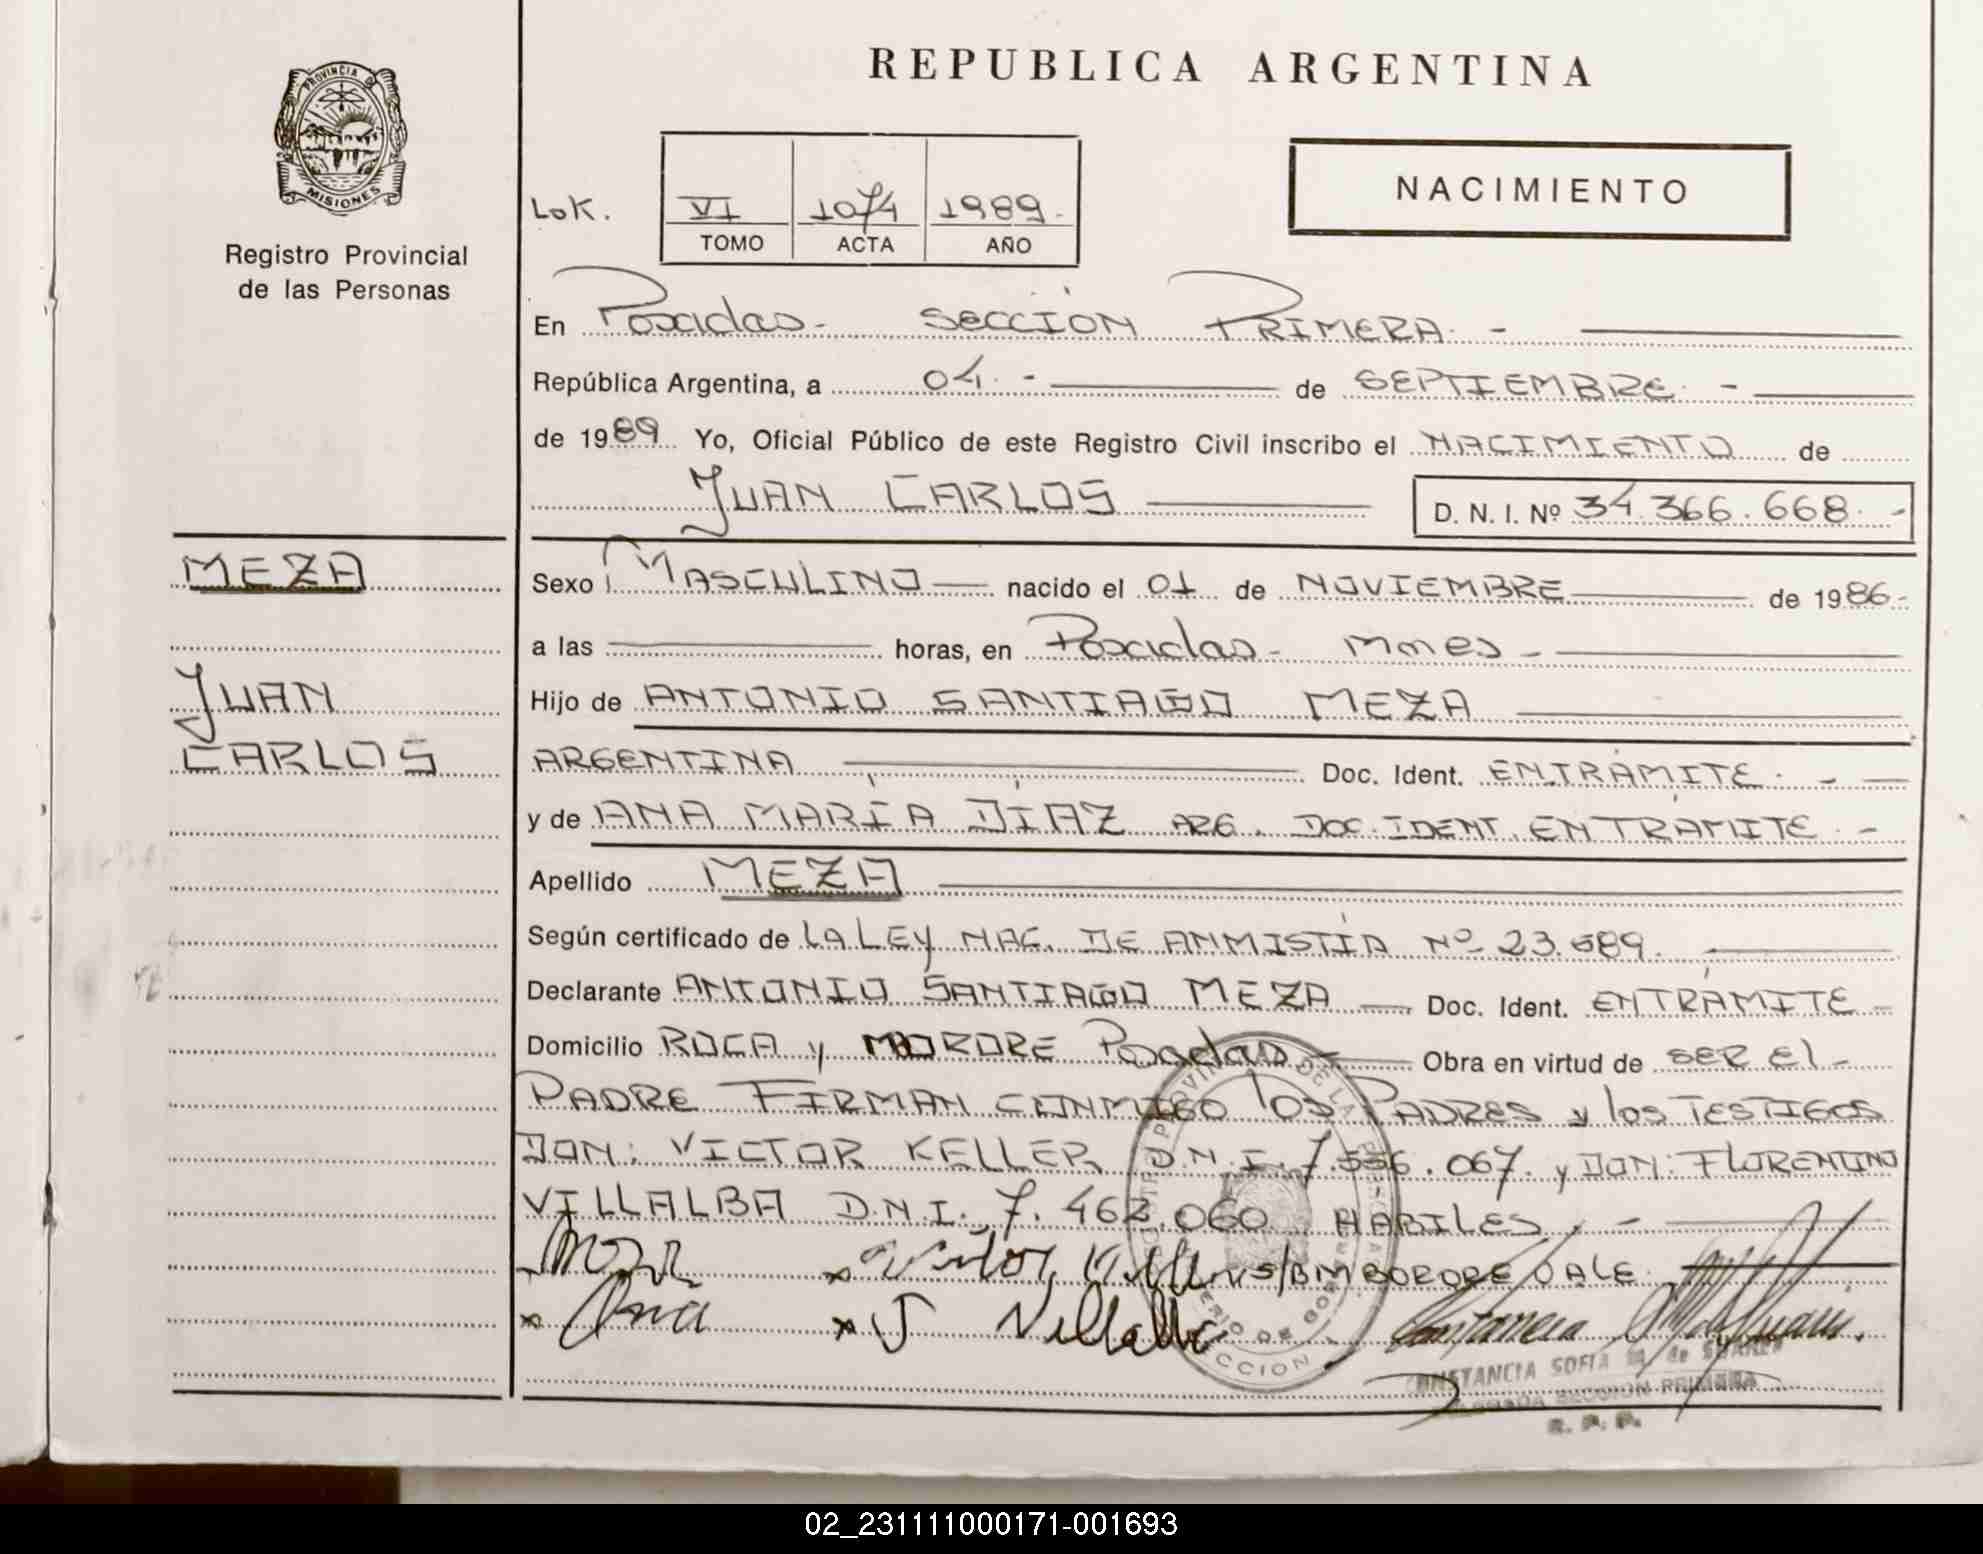 REPUBLICA ARGENTINA
PROVINCIA D
MISIONES
Registro Provincial
de las Personas
LOK.
VI 1074 1989.-
TOMO ACTA AÑO
NACIMIENTO
En Posadas.- SECCIÓN PRIMERA.-
República Argentina, a 04.- de SEPTIEMBRE.-
de 1989 Yo, Oficial Público de este Registro Civil inscribo el NACIMIENTO de
JUAN CARLOS D. N. I. Nº 34.366.668.-
MEZA
JUAN
CARLOS
Sexo MASCULINO nacido el 01 de NOVIEMBRE de 1986.-
a las horas, en Posadas.- Mnes.-
Hijo de ANTONIO SANTIAGO MEZA
ARGENTINA Doc. Ident. EN TRÁMITE.-
y de ANA MARÍA DÍAZ ARG. DOC. IDENT. EN TRÁMITE.-
Apellido MEZA
Según certificado de LA LEY NAC. DE ANMISTÍA Nº 23.689.
Declarante ANTONIO SANTIAGO MEZA Doc. Ident. EN TRÁMITE-
Domicilio ROCA y Posadas Obra en virtud de SER El-
PADRE FIRMAN CONMIGO los PADRES y los TESTIGOS
DON: VICTOR KELLER D.N.I. 7.556.067. y DON: FLORENTINO
VILLALBA D.N.I. 7.462.060 HABILES.-
x Victor BORORE VALE
x Ana x J Villalba
CONSTANCIA SOFIA M. de SUAREZ
SECCION PRIMERA
R. P. P.
02_231111000171-001693